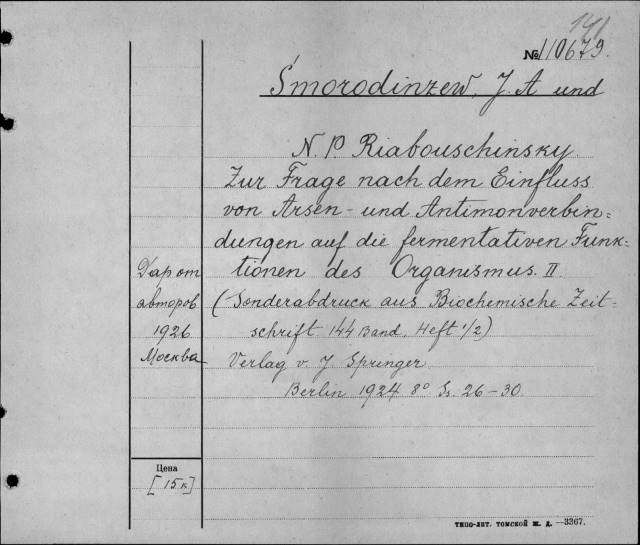 141
№ 110679.
Smorodinzew, J. A und
N. P. Riabouschinsky.
Zur Frage nach dem Einfluss
von Arsen- und Antimonverbin=
dungen auf die fermentativen Funk=
tionen des Organismus. II.
(Sonderabdruck aus Biochemische Zeit-
schrift 144 Band, Heft 1/2)
Verlag v. J. Springer
Berlin 1924 8° Ss. 26-30.
Дар от
авторов
1926
Москва
Цена
[15 к]
ТИПО-ЛИТ. ТОМСКОЙ Ж. Д. —3367.